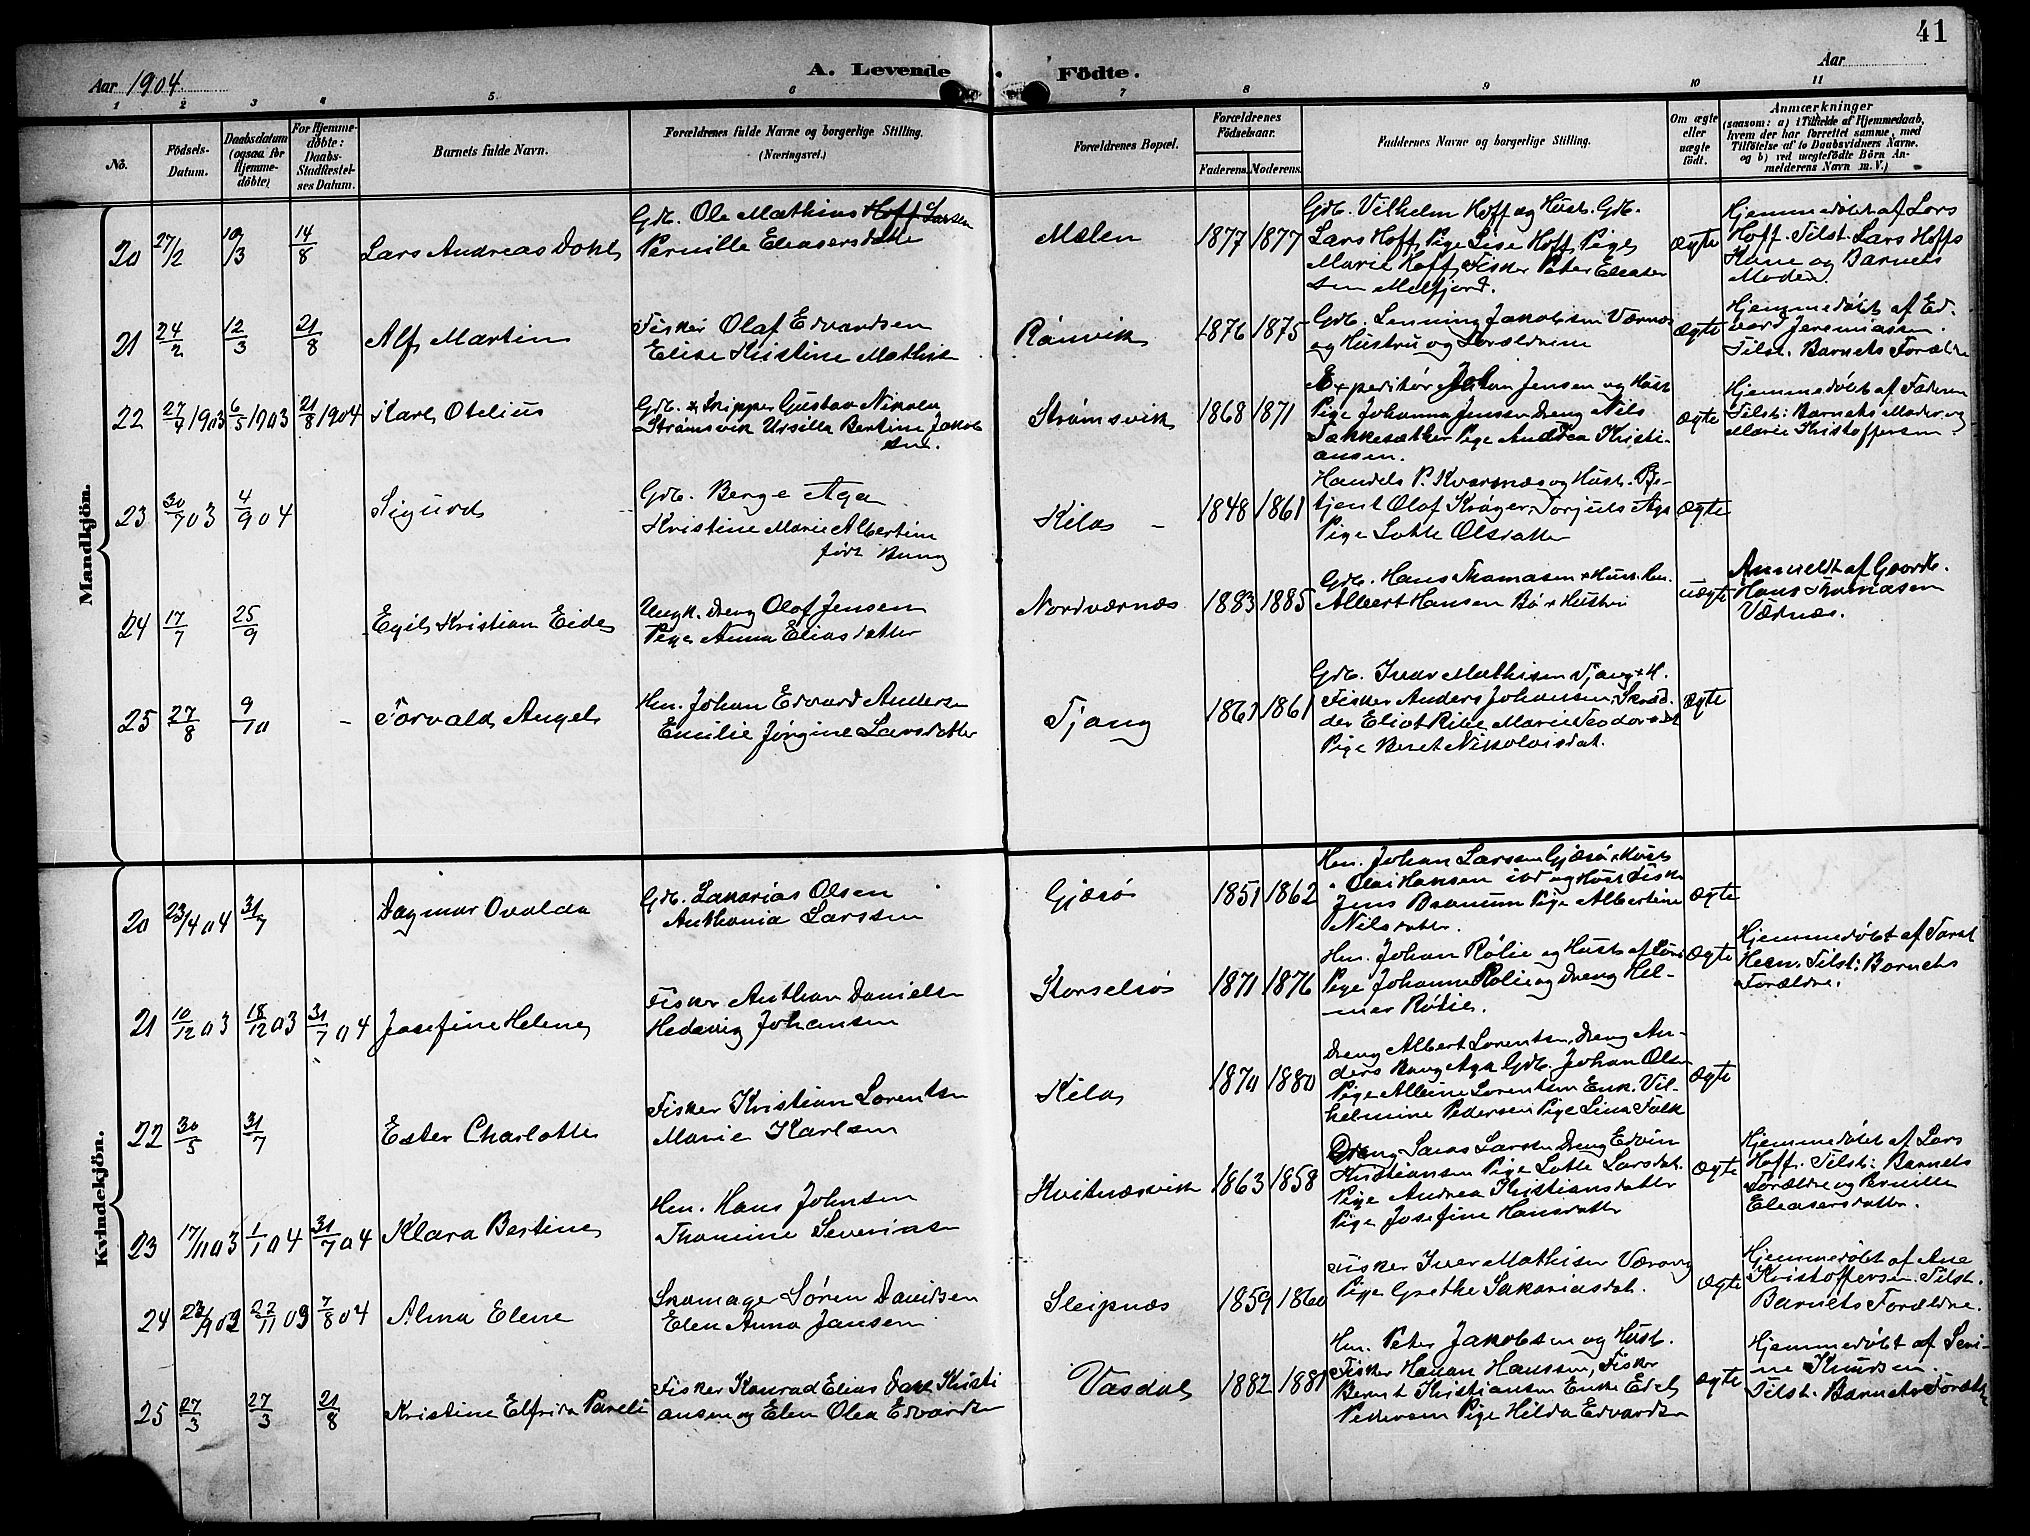 41
Aar 1904.
A. Levende
Födte.
Aar
1 2 3 4 5 6 7 8 9 10 11
No.
Födsels-
Datum.
Daabsdatum
(ogsaa for
Hjemme-
döbte)
For Hjemme-
döbte:
Daabs-
Stadfæstel-
ses Datum.
Barnets fulde Navn.
Forældrenes fulde Navne og borgerlige Stilling.
(Næringsvei.)
Forældrenes Bopæl.
Forældrenes
Födselsaar.
Faderens. Moderens.
Faddernes Navne og borgerlige Stilling.
Om ægte
eller
uægte
født.
Anmærkninger
(saasom: a) i Tilfælde af Hjemmedaab,
hvem der har forrettet samme, med
Tilföielse af to Daabsvidners Navne.
og b) ved uægtefödte Börn An-
melderens Navn m. V.)
Mandkjön.
20 27/2 10/3 14/8 Lars Andreas Dohl
Gdb. Ole Mathius Hoff Larsen
Pernille Eleasersdatter
Mælen 1877 1877
Gdb. Vilhelm Hoff og Hust. Gdb.
Lars Hoff, Pige Lise Hoff, Pige
Marie Hoff, Fisker Peter Eleaser
sen Melfjord.
ægte
Hjemmedøbt af Lars
Hoff. Tilst. Lars Hoffs
Kone og Barnets
Moder.
21 24/2 12/3 21/8 Alf Martin
Fisker Olaf Edvardsen
Elise Kristine Mathis
Rønvik 1876 1875
Gdb. Lenning Jakobsen Værnes
og Hustru og Forældrene
ægte
Hjemmedøbt af Ed-
vard Jeremiassen.
Tilst. Barnets Forældre
22 27/4 1903 6/5 1903 21/8 1904 Karl Otelius
Gdb. & Skipper Gustav Nikolai
Strømsvik Ursilla Bertine Jakob
sen.
Strømsvik 1868 1871
Expeditør Johan Jensen og Hust
Pige Johanna Jensen Dreng Nils
Pige Andrea Kristi-
ansen.
ægte
Hjemmedøbt af Faderen
Tilst: Barnets Moder og
Marie Kristoffersen.
23 30/7 03 4/9 04 Sigurd
Gdb. Berge Aga
Kristine Marie Albertine
født Bung
Kila - 1848 1861
Handels P. Kvarsnæs og Hust. Be-
tjent Olaf Krøger Torjuls Aga
Pige Lotte Olsdatter
ægte
24 17/7 25/9 Egil Kristian Eide
Ungk. Dreng Olaf Jensen
Pige Anna Eliasdatter
Nordværnæs 1883 1885
Gdb. Hans Thomasen + Hust. Hm.
Albert Hansen Bø + Hustru
uægte
Anmeldt af Gaardb.
Hans Thomasen
Værnæs.
25 27/8 9/10 - Torvald Angel
Hm. Johan Edvard Anderse
Emilie Jørgine Larsdatter
Tjong 1861 1861
Gdb. Ivar Mathisen Tjong + H.
Fisker Anders Johansen, Skræd-
der Eliot Marie Teodorsdt
Pige Beret Nikolaisdat.
ægte
Kvindekjön.
20 23/4 04 31/7 Dagmar Ovalda
Gdb. Sakarias Olsen
Anthonia Larssen
Gjæsø 1851 1862
Hm. Johan Larssen Gjæsø + Hust
Olai Hansen ibd og Hust Fisk
Jens Pige Albertine
Nilsdatter.
ægte
21 10/12 03 18/12 03 31/7 04 Josefine Helene
Fisker Anthon Danielse
Hedevig Johansen
Storselsøs 1871 1876
Hm. Johan Rølie og Hust
Pige Johanne Rølie og Dreng Hel-
mer Røtie.
ægte
Hjemmedøbt af Forst
Hern. Tilst: Barnets
Forældre.
22 30/5 31/7 Ester Charlotte
Fisker Kristian Lorentse
Marie Karlsen
Kila 1870 1880
Dreng Albert Lorentsen, Dreng An-
ders Bang Aga Gdb. Johan Olsen
Pige Alleine Lorentsen Enk. Vil-
helmine Pedersen Pige Lina Falk
ægte
23 17/11 03 1/1 04 31/7 04 Klara Bertine
Hm. Hans Johnsen
Thomine Severinse
Kvitnæsvik 1863 1858
Dreng Larsen Dreng Edvin
Kristiansen Pige Lotte Larsdat.
Pige Andrea Kristiansdatter
Pige Josefine Hansdatter
ægte
Hjemmedøbt af Lars
Hoff. Tilst: Barnets
Forældre og Pernille
Eleasersdatter.
24 23/9 02 22/11 03 7/8 04 Alma Elene
Skomager Søren Davidsen
Elen Anna Jansen
Sleipnæs 1859 1860
Fisker Iver Mathisen Værang
Pige Grethe Sakariasdat.
ægte
Hjemmedøbt af Ane
Kristoffersen. Tilst.
Barnets Forældre.
25 27/3 27/3 21/8 Kristine Elfrida Pareli
Fisker Konrad Elias Dav Kristi
ansen og Elen Olea Edvardse
Vasdal 1882 1881
Hm. Peter Jakobsen og Hust.
Fisker Hanan Hanssen, Fisker
Bernt Kristiansen Enke Edel
Pedersen Pige Hilda Edvardse
ægte
Hjemmedøbt af Seve-
rine Knudsen.
Tilst. Barnets Forældre